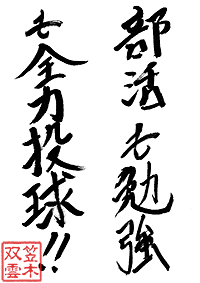 部活も勉強
も全力投球!!
笠木
双雲